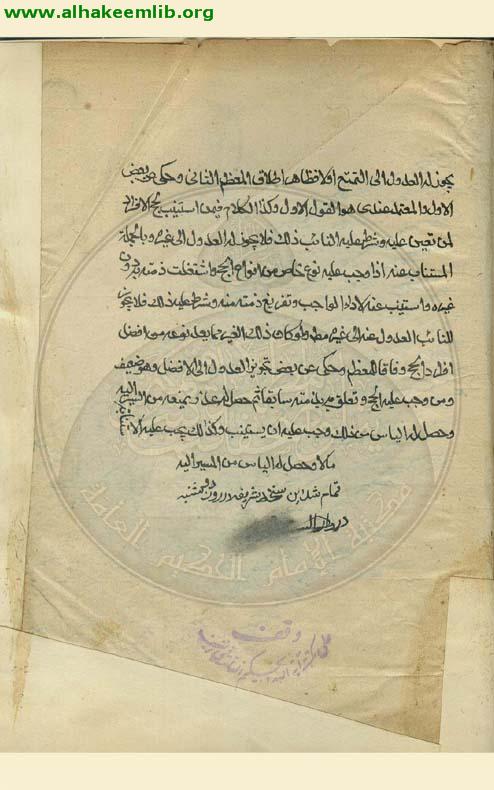 www.alhakeemlib.org
يجوز له العدول الى التمتع او لا فظاهر اطلاق المعظم الثانى وحكى عن بعض
الاول والمعتمد عندى هو القول الاول وكذا الكلام فيمن استنيب لحج الافراد
لمن تعين عليه وشرط عليه النائب ذلك فلا يجوز له العدول الى غيره وبالجملة
المستناب عنه اذا وجب عليه نوع خاص من انواع الحج واشتغلت ذمته به دون
غيره واستنيب عنه لاداء الواجب وتفريغ ذمته منه وشرط عليه ذلك فلا يجوز
للنائب العدول عنه الى غيره مطلقا ولو كان ذلك الغير مما يعد نوعه من افضل
افراد الحج وفاقا للمعظم وحكى عن بعض تجويز العدول الى الافضل وهو ضعيف
ومن وجب عليه الحج وتعلق بذمته سابقا ثم حصل له عذر يمنعه من المسير اليه
وحصل له الياس من ذلك وجب عليه ان يستنيب وكذلك يجب عليه الاستنابة
مالا وحصل له الياس من المسير اليه
تمام شد اين نسخه شريفه در روز دوشنبه
در
وقف
مكتبة الإمام الحكيم العامة